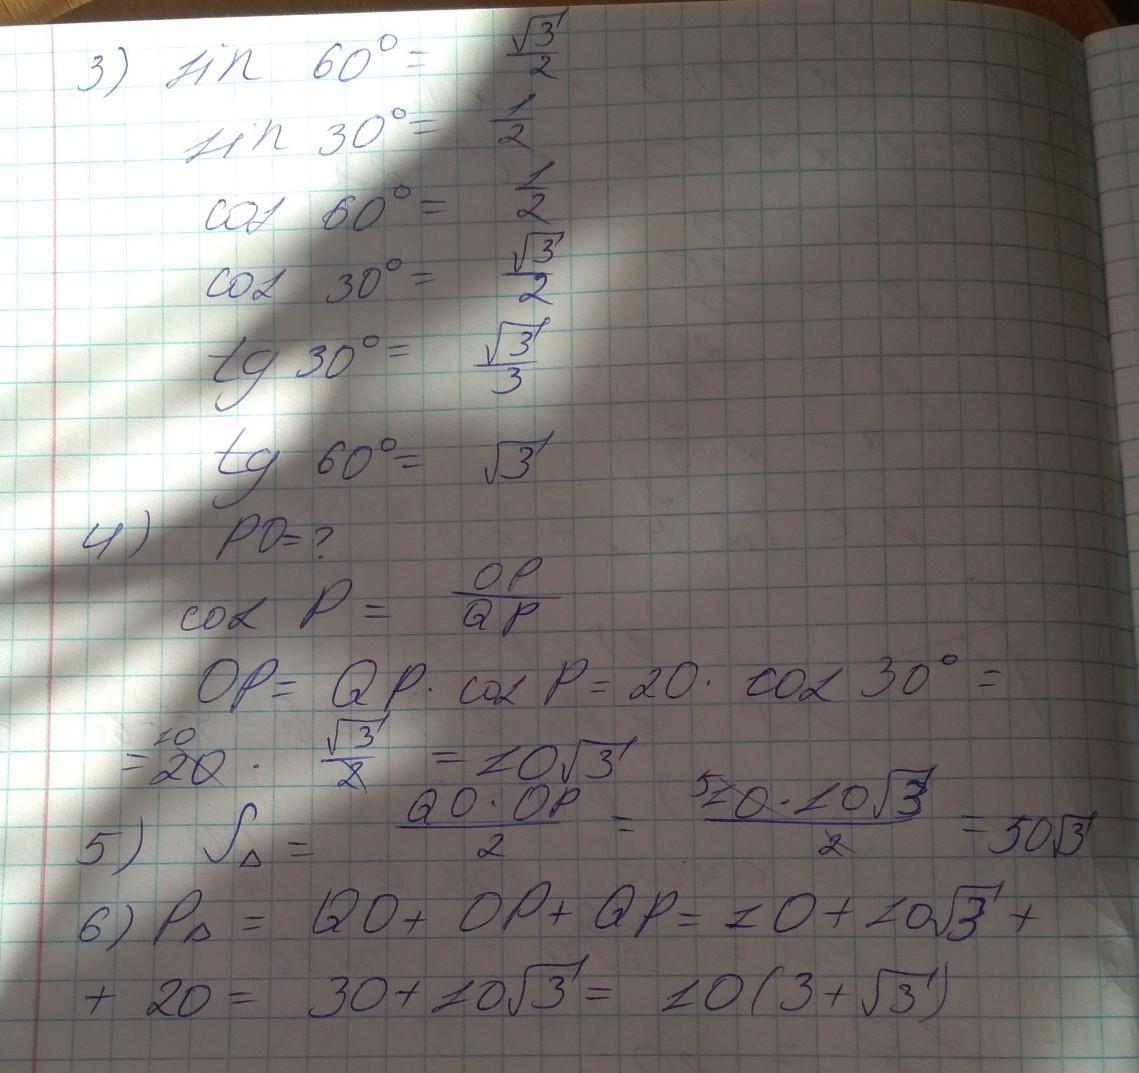 3) sin 60° = √3/2
sin 30° = 1/2
cos 60° = 1/2
cos 30° = √3/2
tg 30° = √3/3
tg 60° = √3
4) PO = ?
cos P = OP/QP
OP = QP · cos P = 20 · cos 30° =
= 20 10 · √3/2 = 10√3
5) S△ = QO · OP/2 = 5 10 · 10√3/2 = 50√3
6) P△ = QO + OP + QP = 10 + 10√3 +
+ 20 = 30 + 10√3 = 10(3 + √3)